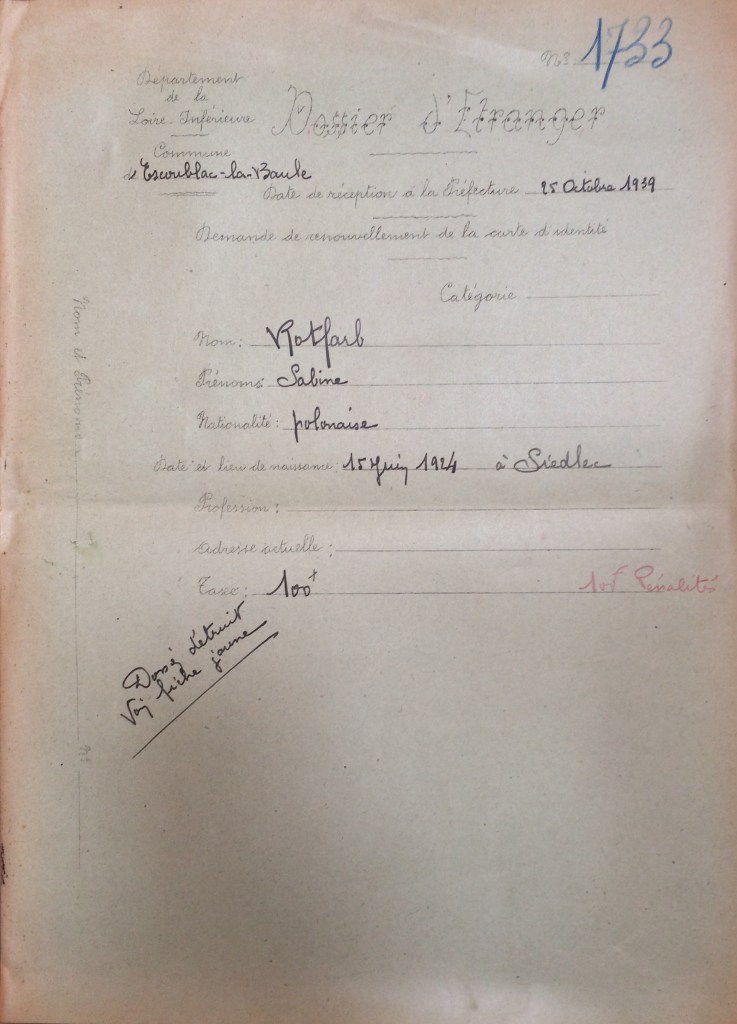 Nº 1733
Département
de la
Loire-Inférieure
Dossier d'Etranger
Commune
d'Escoublac-la-Baule
Date de réception à la Préfecture 25 Octobre 1939
Demande de renouvellement de la carte d'identité
Catégorie
Nom: Rotfarb
Prénoms: Sabine
Nationalité: polonaise
Date et lieu de naissance: 15 Juin 1924 à Siedlec
Profession:
Adresse actuelle:
Taxe: 100f
10f Pénalités
Dossier détruit
Voir fiche jaune
Nom et Prénoms
Nº